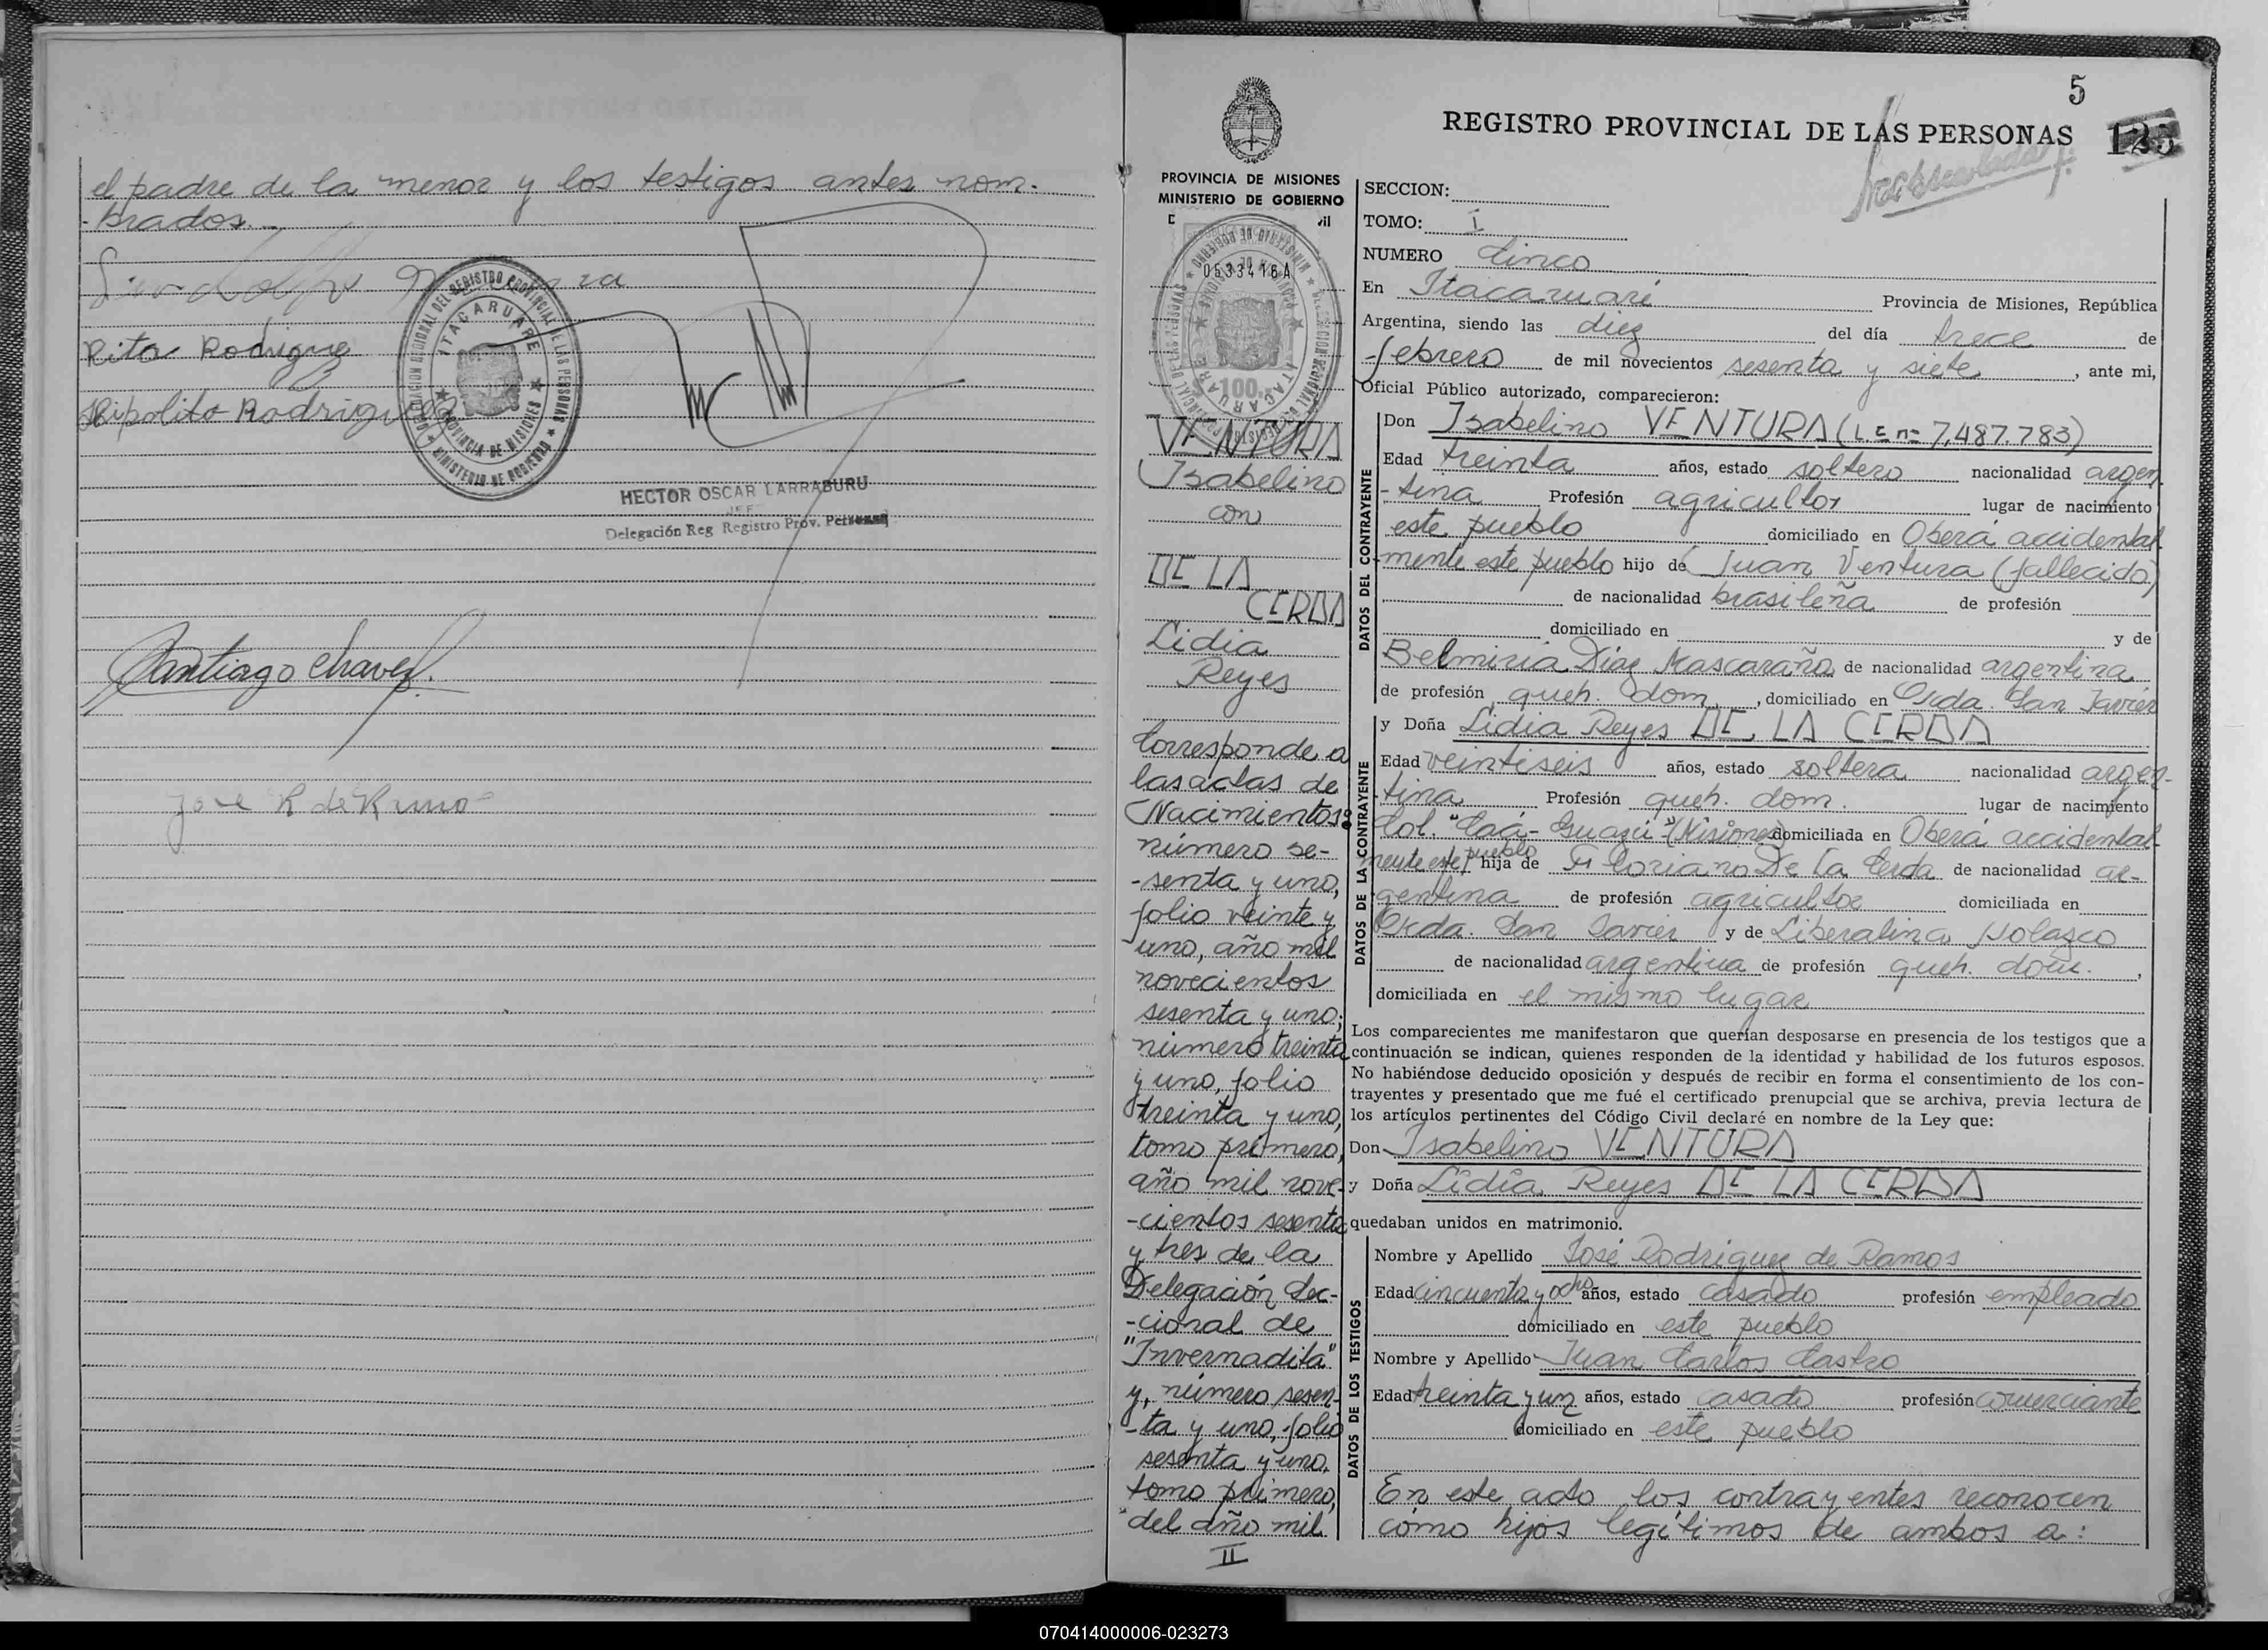 el padre de la menor y los testigos antes nom-
-brados.-
Rita Rodriguez
Hipolito Rodriguez
DELEGACION REGIONAL DEL REGISTRO PROVINCIAL DE LAS PERSONAS
ITACARUARE
PROVINCIA DE MISIONES
MINISTERIO DE GOBIERNO
HECTOR OSCAR LARRABURU
JEFE
Delegación Reg. Registro Prov. Personas
Santiago Chavez
5
REGISTRO PROVINCIAL DE LAS PERSONAS
125
PROVINCIA DE MISIONES
MINISTERIO DE GOBIERNO
0533416A
100
ITACARUARE
VENTURA
Isabelino
con
DE LA
CERDA
Lidia
Reyes
Corresponde a
las actas de
Nacimientos:
número se-
-senta y uno,
folio veinte y
uno, año mil
novecientos
sesenta y uno;
número treinta
y uno, folio
treinta y uno,
tomo primero,
año mil nove-
-cientos sesenta
y tres de la
Delegación Sec-
-cional de
"Invernadita"
y, número sesen-
-ta y uno, folio
sesenta y uno,
tomo primero,
del año mil
II
SECCION:
TOMO: I
NUMERO Cinco
En Itacaruaré Provincia de Misiones, República
Argentina, siendo las diez del día trece de
febrero de mil novecientos sesenta y siete, ante mi,
Oficial Público autorizado, comparecieron:
DATOS DEL CONTRAYENTE
Don Isabelino VENTURA (L.E nº 7.487.783)
Edad treinta años, estado soltero nacionalidad argen-
-tina Profesión agricultor lugar de nacimiento
este pueblo domiciliado en Oberá accidental-
mente este pueblo hijo de Juan Ventura (fallecido)
de nacionalidad brasileña de profesión
domiciliado en y de
Belmiria Díaz Mascaraña de nacionalidad argentina
de profesión queh. dom. , domiciliado en Ckda. San Javier
DATOS DE LA CONTRAYENTE
y Doña Lidia Reyes DE LA CERDA
Edad veintiseis años, estado soltera nacionalidad argen-
-tina Profesión queh. dom. lugar de nacimiento
Col. "Caá-Guazú" (Misiones) domiciliada en Oberá accidental-
mente este pueblo hija de Floriano De La Cerda de nacionalidad ar-
gentina de profesión agricultor domiciliada en
Ckda. San Javier y de Liberalina Nolazco
de nacionalidad argentina de profesión queh. dom. ,
domiciliada en el mismo lugar
Los comparecientes me manifestaron que querían desposarse en presencia de los testigos que a
continuación se indican, quienes responden de la identidad y habilidad de los futuros esposos.
No habiéndose deducido oposición y después de recibir en forma el consentimiento de los con-
trayentes y presentado que me fué el certificado prenupcial que se archiva, previa lectura de
los artículos pertinentes del Código Civil declaré en nombre de la Ley que:
Don Isabelino VENTURA
y Doña Lidia Reyes DE LA CERDA
quedaban unidos en matrimonio.
DATOS DE LOS TESTIGOS
Nombre y Apellido José Rodriguez de Ramos
Edad cincuenta y ocho años, estado casado profesión empleado
domiciliado en este pueblo
Nombre y Apellido Juan Carlos Castro
Edad treinta y un años, estado casado profesión comerciante
domiciliado en este pueblo
En este acto los contrayentes reconocen
como hijos legítimos de ambos a:
070414000006-023273